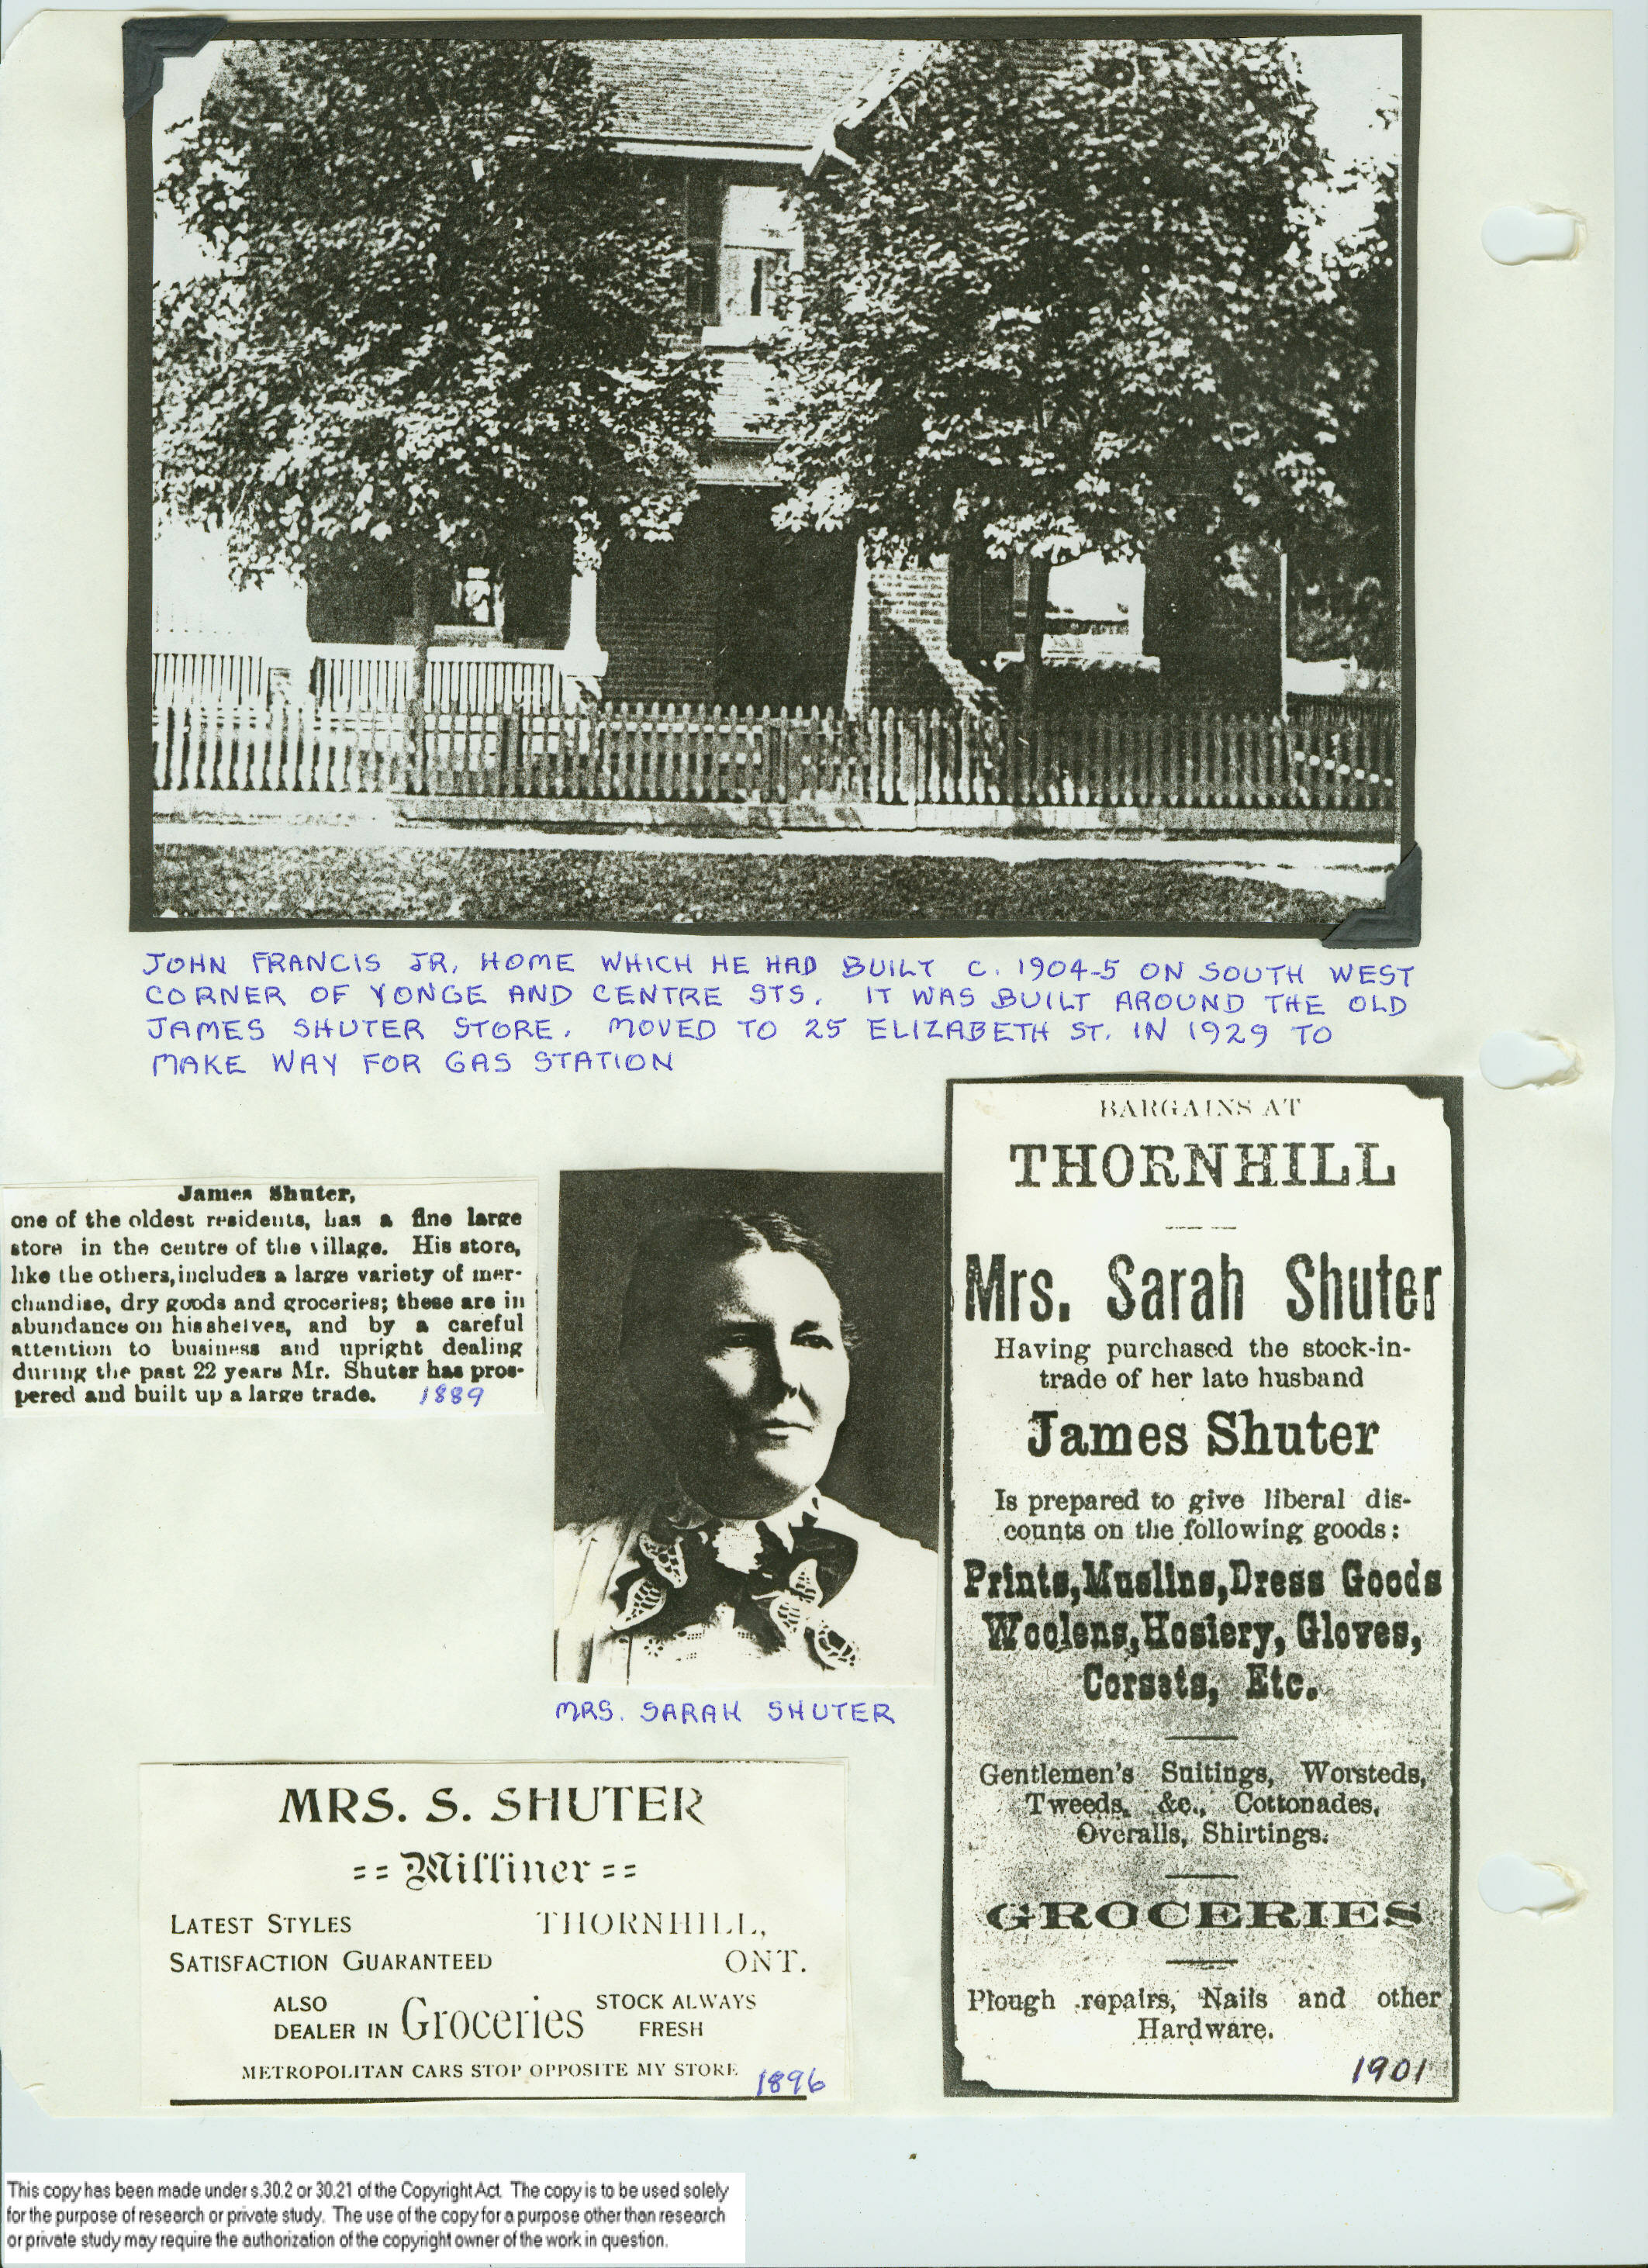 JOHN FRANCIS JR. HOME WHICH HE HAD BUILT C. 1904-5 ON SOUTH WEST
CORNER OF YONGE AND CENTRE STS. IT WAS BUILT AROUND THE OLD
JAMES SHUTER STORE. MOVED TO 25 ELIZABETH ST. IN 1929 TO
MAKE WAY FOR GAS STATION
James Shuter,
one of the oldest residents, has a fine large
store in the centre of the village. His store,
like the others, includes a large variety of mer-
chandise, dry goods and groceries; these are in
abundance on his shelves, and by a careful
attention to business and upright dealing
during the past 22 years Mr. Shuter has pros-
pered and built up a large trade. 1889
MRS. SARAH SHUTER
BARGAINS AT
THORNHILL
Mrs. Sarah Shuter
Having purchased the stock-in-
trade of her late husband
James Shuter
Is prepared to give liberal dis-
counts on the following goods:
Prints, Muslins, Dress Goods
Woolens, Hosiery, Gloves,
Corsets, Etc.
Gentlemen's Suitings, Worsteds,
Tweeds, &c., Cottonades,
Overalls, Shirtings.
GROCERIES
Plough repairs, Nails and other
Hardware.
1901
MRS. S. SHUTER
== Milliner ==
LATEST STYLES THORNHILL,
SATISFACTION GUARANTEED ONT.
ALSO
DEALER IN Groceries STOCK ALWAYS
FRESH
METROPOLITAN CARS STOP OPPOSITE MY STORE 1896
This copy has been made under s.30.2 or 30.21 of the Copyright Act. The copy is to be used solely
for the purpose of research or private study. The use of the copy for a purpose other than research
or private study may require the authorization of the copyright owner of the work in question.